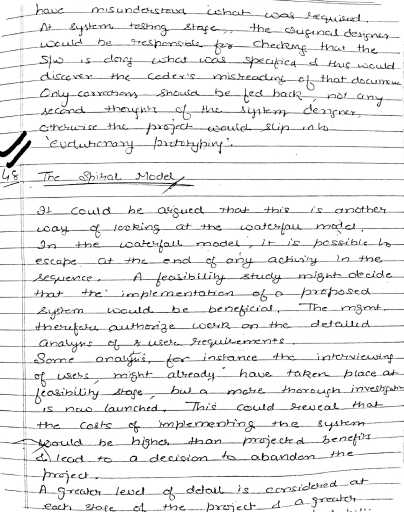 have misunderstood what was required.
At system testing stage, the original designer
would be responsible for checking that the
S/w is doing what was specified & this would
discover the coder's misreading of that document
Only corrections should be fed back, not any
second thoughts of the system designer,
otherwise the project would slip into
'evolutionary prototyping'.
48 The Spiral Model
It could be argued that this is another
way of looking at the waterfall model.
In the waterfall model, it is possible to
escape at the end of any activity in the
sequence. A feasibility study might decide
that the implementation of a proposed
system would be beneficial. The mgmt.
therefore authorize work on the detailed
analysis of user requirements.
Some analysis, for instance the interviewing
of users, might already have taken place at
feasibility stage, but a more thorough investigation
is now launched. This could reveal that
the costs of implementing the system
would be higher than projected benefits
& lead to a decision to abandon the
project.
A greater level of detail is considered at
each stage of the project & a greater